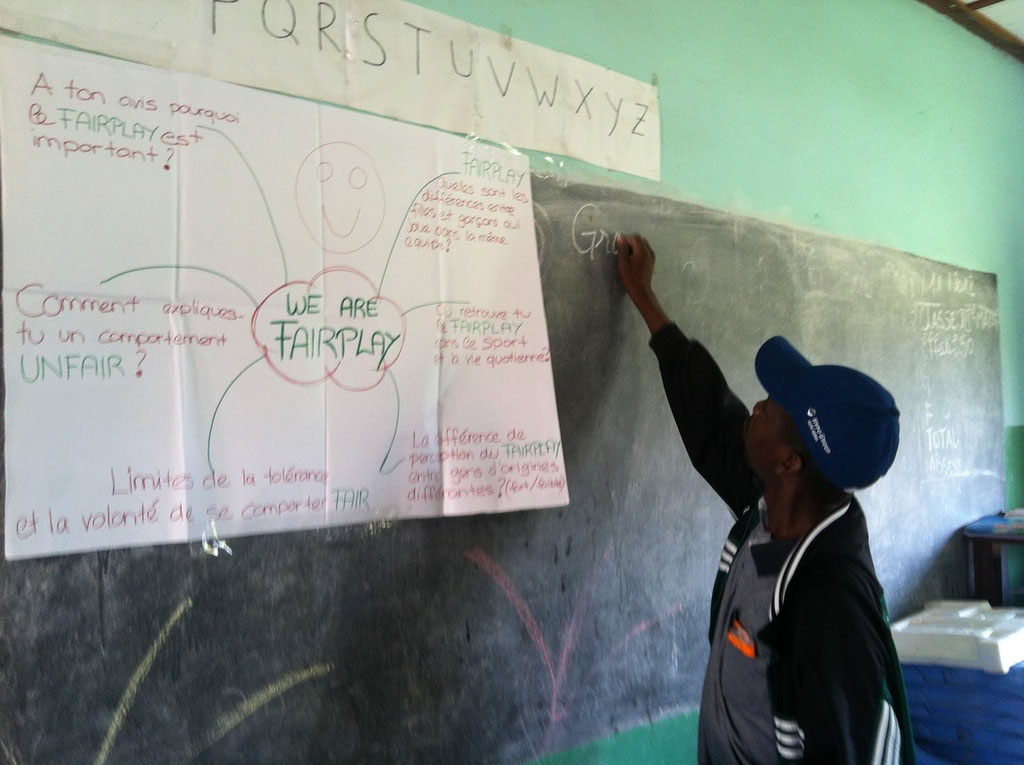 PQRSTUVWXYZ
A ton avis pourquoi
le FAIRPLAY est
important?
FAIRPLAY
Quelles sont les
différences entre
filles et garçons qui
joue dans la même
équipe?
Comment expliques-
tu un comportement
UNFAIR?
WE ARE
FAIRPLAY
Où retrouve tu
le FAIRPLAY
dans le sport
et la vie quotienne?
Limites de la tolérance
et la volonté de se comporter FAIR
La différence de
perception du FAIRPLAY
entre gens d'origines
différentes? (fort/faible)
Gra
TOTAL